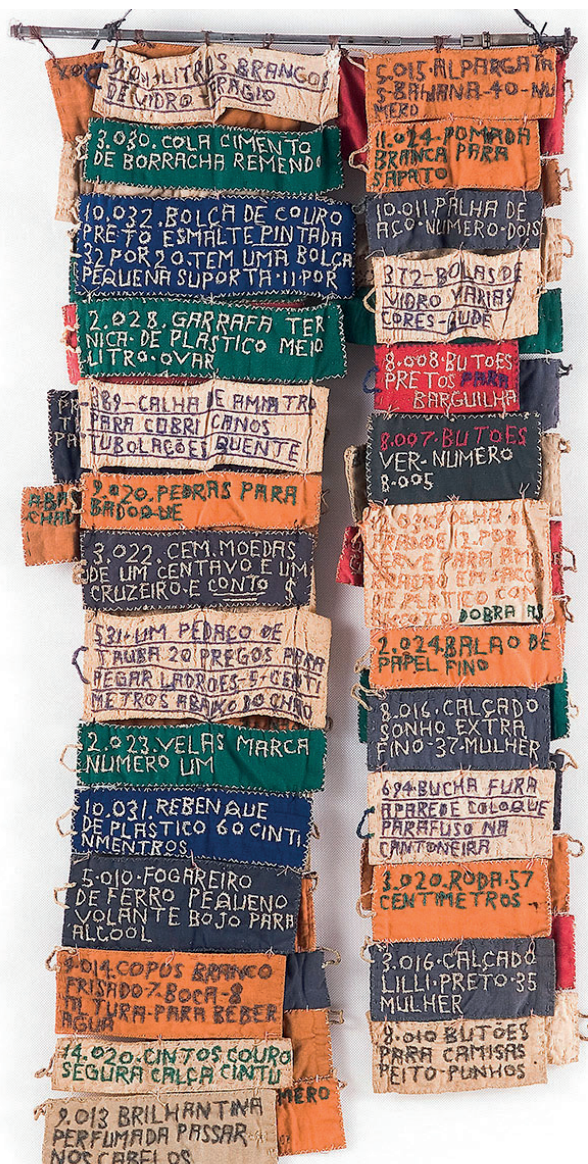 LITROS BRANCOS
DE VIDRO FRAGIO
3.030. COLA CIMENTO
DE BORRACHA REMENDO
10.032. BOLÇA DE COURO
PRETO ESMALTE PINTADA
32 POR 20. TEM UMA BOLÇA
PEQUENA SUPORTA. 11. POR
2.028. GARRAFA TER
NICA. DE PLASTICO MEIO
LITRO. OVAR
389-CALHA DE AMIATRO
PARA COBRI CANOS
TUBOLAÇOES QUENTE
2.020. PEDRAS PARA
BADOQUE
3.022. CEM. MOEDAS
DE UM CENTAVO E UM
CRUZEIRO. E CONTO $
531. UM PEDAÇO DE
TAUBA 20 PREGOS PARA
PEGAR LADROES-5-CENTI
METROS ABAIXO DO CHÃO
2.023. VELAS MARCA
NUMERO UM
10.031. REBENQUE
DE PLASTICO 60 CINTI
NMENTROS
5.010. FOGAREIRO
DE FERRO PEQUENO
VOLANTE BOJO PARA
ALCOOL
9.014. COPUS BRANCO
FRISADO-7. BOCA-8
TURA-PARA BEBER
AGUA
14.020. CINTOS COURO
SEGURA CALÇA CINTU
9.013 BRILHANTINA
PERFUMADA PASSAR
NOS CABELOS
MERO
ABA
CHAV
5.015. ALPARGATA
S-BAHIANA-40-NU
MERO
11.024-POMADA
BRANCA PARA
SAPATO
10.011. PALHA DE
AÇO. NUMERO-DOIS
372-BOLAS DE
VIDRO VARIAS
CORES-GUDE
8.008. BUTOES
PRETOS PARA
BARGUILHA
8.007. BUTOES
VER-NUMERO
8.005
FOLHA
POR
SERVE PARA
EM SACO
DE PLASTICO COM
DOBRA AS
2.024. BALAO DE
PAPEL FINO
8.016. CALÇADO
SONHO EXTRA
FINO-37-MULHER
694-BUCHA FURA
APAREDE COLOQUE
PARAFUSO NA
CANTONEIRA
3.020. RODA. 57
CENTIMETROS
3.016. CALÇADO
LILLI. PRETO. 35
MULHER
8.010 BUTOES
PARA CAMISAS
PEITO-PUNHOS